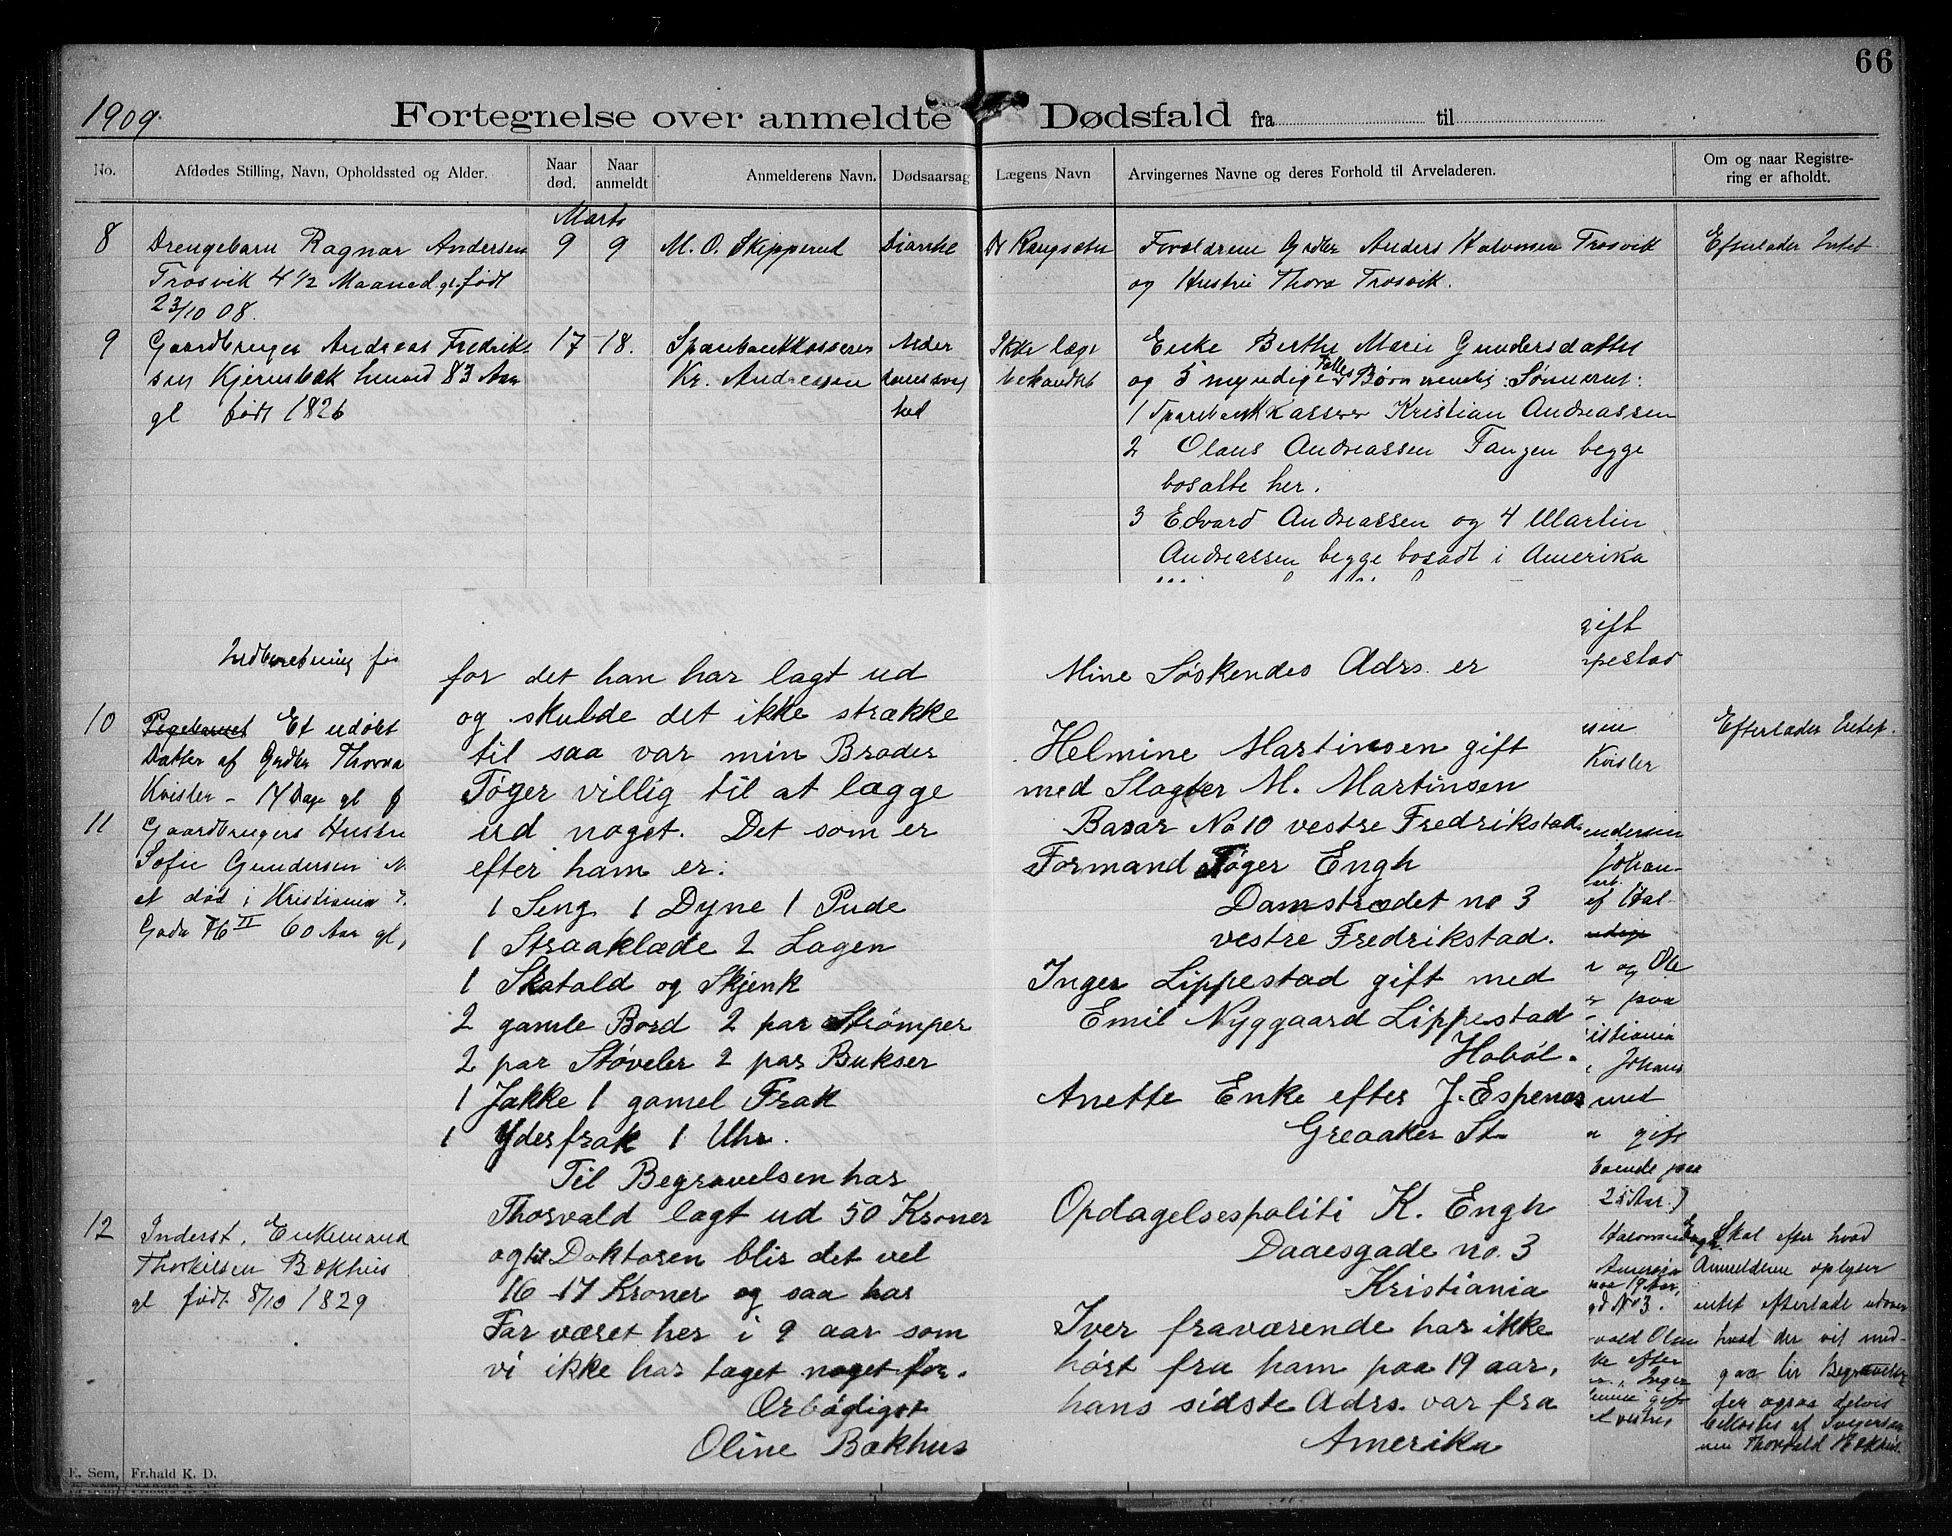 66
1909.
Fortegnelse over anmeldte Dødsfald fra til
No.
Afdødes Stilling, Navn, Opholdssted og Alder.
Naar død.
Naar anmeldt
Anmelderens Navn.
Dødsaarsag
Lægens Navn
Arvingernes Navne og deres Forhold til Arveladeren.
Om og naar Registre-
ring er afholdt.
Marts
8 Drengebarn Ragnar Andersen 9 9 M. O. Skipperud
Trosvik 4 1/2 Maaned gl. født
23/10 08.
Forældrene Grdbr Anders Halvorsen Trosvik
og Hustru Thora Trosvik.
Efterlader Intet
9 Gaardbruger Andreas Fredrik- 17 18. Sparebankkasserer
sen Kjernsbæk henved 83 Aar Kr. Andreassen
gl født 1826
Alder
doms svag
hed
Ikke læge
behandlet
Enke Berthe Marie Gundersdatter
og 5 myndige Fælles Børn nemlig: Sønnerne:
1 Sparebankkasserer Kristian Andreassen
2 Olaus Andreassen Tangen begge
bosatte her.
3 Edvard Andreassen og 4 Martin
Andreassen begge bosadt i Amerika
gift
pestad
Indberetning for
10 Pigebarnet Et udøbt
Datter af Grdbr Thorva
Kvisler - 14 Dage gl f
sen
Kvisler
Efterlader Intet.
11 Gaardbrugers Hustru
Sofie Gundersen
et død i Kristiania
Gade 76 II 60 Aar gl,
ndersen
Johan-
af Hal-
r og Ole
paa
istiania
Johans
med
gift
Boende paa
25 Aar.)
12 Inderst, Enkemand
Thorkilsen Bækhus
gl født 8/10 1829
Halvorsen Engh
Amerika
paa 19 Aar,
gd No 3.
vald Olsen
ke efter
Inger
gift
vestre
Skal efter hvad
Anmelderne oplyser
intet efterlade udover
hvad der vil med-
gaa til Begravelse
der ogsaa delvis
bekostes af Svigersøn
nen Thorvald Bækhus.
for det han har lagt ud
og skulde det ikke strække
til saa var min Broder
Tøger villig til at lægge
ud noget. Det som er
efter ham er:
1 Seng 1 Dyne 1 Pude
1 Straaklæde 2 Lagen
1 Skatold og Skjenk
2 gamle Bord 2 par Strømper
2 par Støvler 2 par Bukser
1 Jakke 1 gamel Frak
1 Yderfrak 1 Uhr.
Til Begravelsen har
Thorvald lagt ud 50 Kroner
og til Doktoren blir det vel
16-17 Kroner og saa har
Far været her i 9 aar som
vi ikke har taget noget for.
Ærbødigst
Oline Bækhus
Mine Søskendes Adrs. er
Helmine Martinsen gift
med Slagter M. Martinsen
Basar No 10 vestre Fredrikstad
Formand Tøger Engh
Damstrædet no 3
vestre Fredrikstad.
Inger Lippestad gift med
Emil Nyggaard Lippestad
Hobøl.
Anette Enke efter J. Espenes
Greaaker St.
Opdagelsespoliti K. Engh
Daaesgade no. 3
Kristiania
Iver fraværende har ikke
hørt fra ham paa 19 aar,
hans sidste Adrs. var fra
Amerika
E. Sem, Fr.hald K. D.